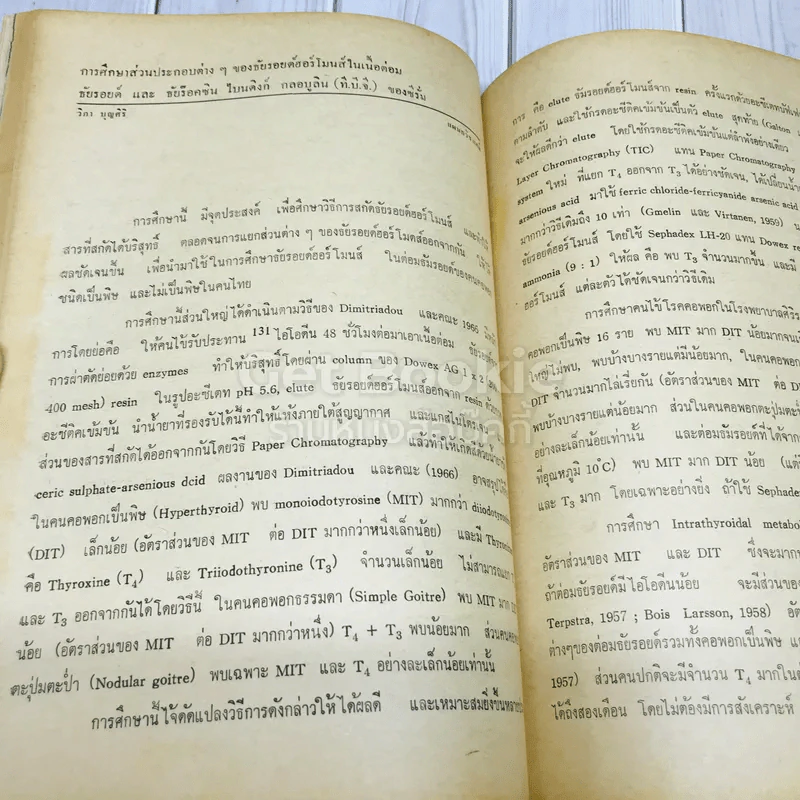 การศึกษาส่วนประกอบต่าง ๆ ของธัยรอยด์ฮอร์โมนส์ในเนื้อต่อม
ธัยรอยด์ และ ธัยร็อคซิน ไบนดิงก์ กลอบูลิน (ที.บี.จี.) ของซีรั่ม
วิภา บุญศิริ
การศึกษานี้ มีจุดประสงค์ เพื่อศึกษาวิธีการสกัดธัยรอยด์ฮอร์โมนส์
สารที่สกัดได้บริสุทธิ์ ตลอดจนการแยกส่วนต่าง ๆ ของธัยรอยด์ฮอร์โมนส์ออกจากกัน
ผลชัดเจนขึ้น เพื่อนำมาใช้ในการศึกษาธัยรอยด์ฮอร์โมนส์ ในต่อมธัยรอยด์ของคน
ชนิดเป็นพิษ และไม่เป็นพิษในคนไทย
การศึกษานี้ส่วนใหญ่ได้ดำเนินตามวิธีของ Dimitriadou และคณะ 1966
การโดยย่อคือ ให้คนไข้รับประทาน 131 ไอโอดีน 48 ชั่วโมงต่อมาเอาเนื้อต่อม
การผ่าตัดย่อยด้วย enzymes ทำให้บริสุทธิ์โดยผ่าน column ของ Dowex AG 1
400 mesh) resin ในรูปอะซีเตท pH 5.6, elute ธัยรอยด์ฮอร์โมนส์ออกจาก resin
อะซีติคเข้มข้น นำน้ำยาที่รองรับได้นี้ทำให้แห้งภายใต้สูญญากาศ และแก๊สไนโตรเจน
ส่วนของสารที่สกัดได้ออกจากกันโดยวิธี Paper Chromatography แล้วทำให้เกิดสีด้วย
ceric sulphate-arsenious dcid ผลงานของ Dimitriadou และคณะ (1966)
ในคนคอพอกเป็นพิษ (Hyperthyroid) พบ monoiodotyrosine (MIT) มากกว่า diiodotyrosine
(DIT) เล็กน้อย (อัตราส่วนของ MIT ต่อ DIT มากกว่าหนึ่งเล็กน้อย) และมี
คือ Thyroxine (T4) และ Triiodothyronine (T3) จำนวนเล็กน้อย ไม่สามารถแยก
และ T3 ออกจากกันได้โดยวิธีนี้ ในคนคอพอกธรรมดา (Simple Goitre) พบ MIT มาก
น้อย (อัตราส่วนของ MIT ต่อ DIT มากกว่าหนึ่ง) T4 + T3 พบน้อยมาก
ตะปุ่มตะป่ำ (Nodular goitre) พบเฉพาะ MIT และ T4 อย่างละเล็กน้อยเท่านั้น
การศึกษานี้ได้ดัดแปลงวิธีการดังกล่าวให้ได้ผลดี และเหมาะสมยิ่งขึ้น
การ คือ elute ธัยรอยด์ฮอร์โมนส์จาก resin ครั้งแรกด้วย
ตามลำดับ และใช้กรดอะซีติคเข้มข้นเป็นตัว elute สุดท้าย (Galton
จะให้ผลดีกว่า elute โดยใช้กรดอะซีติคเข้มข้นแต่ลำพังอย่างเดียว
Layer Chromatography (TIC) แทน Paper Chromatography
system ใหม่ ที่แยก T4 ออกจาก T3 ได้อย่างชัดเจน, ได้เปลี่ยน
arsenious acid มาใช้ ferric chloride-ferricyanide arsenic acid
มากกว่าวิธีเดิมถึง 10 เท่า (Gmelin และ Virtanen, 1959)
ธัยรอยด์ฮอร์โมนส์ โดยใช้ Sephadex LH-20 แทน Dowex
ammonia (9 : 1) ให้ผล คือ พบ T3 จำนวนมากขึ้น และมี
ฮอร์โมนส์ แต่ละตัวได้ชัดเจนกว่าวิธีเดิม
การศึกษาคนไข้โรคคอพอกในโรงพยาบาลศิริ
คอพอกเป็นพิษ 16 ราย พบ MIT มาก DIT น้อยมาก
ใหญ่ไม่พบ, พบบ้างบางรายแต่มีน้อยมาก, ในคนคอพอก
DIT จำนวนมากไล่เรี่ยกัน (อัตราส่วนของ MIT ต่อ
พบบ้างบางรายแต่น้อยมาก ส่วนในคนคอพอกตะปุ่มตะป่ำ
อย่างละเล็กน้อยเท่านั้น และต่อมธัยรอยด์ที่ได้จาก
ที่อุณหภูมิ 10°C) พบ MIT มาก DIT น้อย
และ T3 มาก โดยเฉพาะอย่างยิ่ง ถ้าใช้ Sephadex
การศึกษา Intrathyroidal
อัตราส่วนของ MIT และ DIT ซึ่งจะมาก
ถ้าต่อมธัยรอยด์มีไอโอดีนน้อย จะมีส่วนของ
Terpstra, 1957 ; Bois Larsson, 1958)
ต่างๆของต่อมธัยรอยด์รวมทั้งคอพอกเป็นพิษ
1957) ส่วนคนปกติจะมีจำนวน T4 มากใน
ได้ถึงสองเดือน โดยไม่ต้องมีการสังเคราะห์